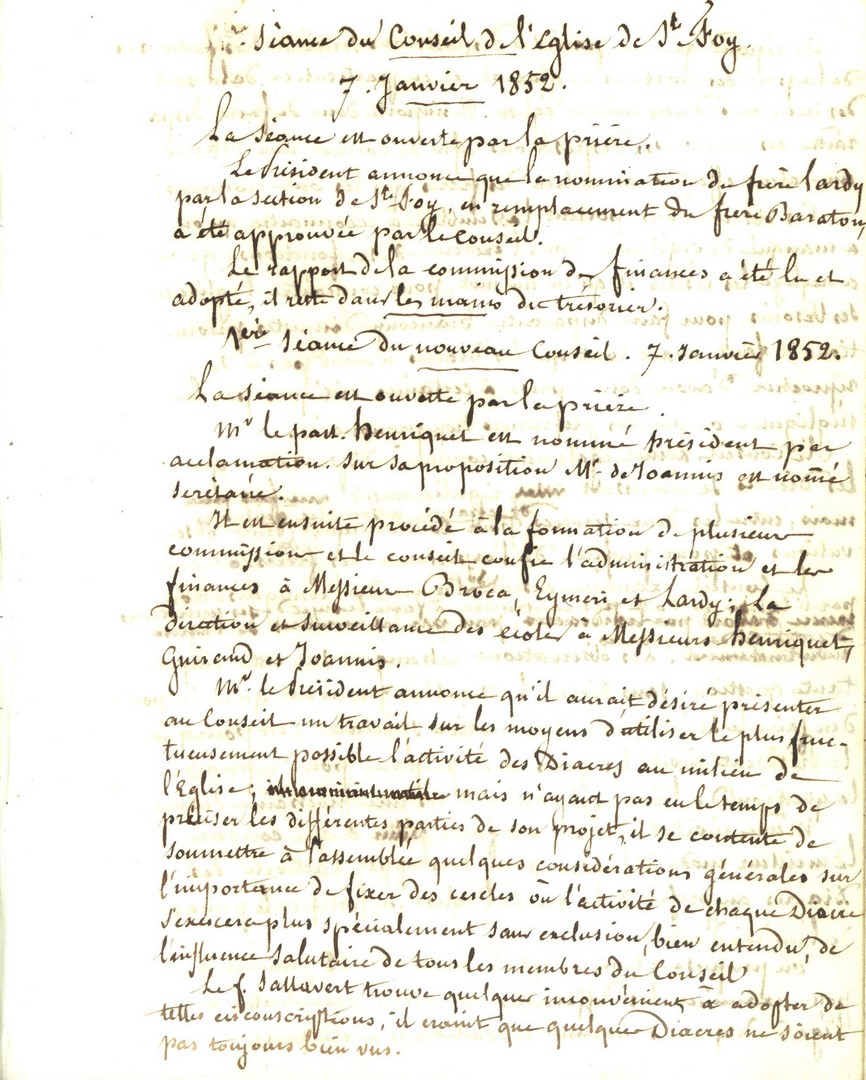 Séance du Conseil de l'Eglise de Ste Foy.
7. Janvier 1852.
La séance est ouverte par la prière.
Le Président annonce que la nomination du frère Lardy
par la section de Ste Foy, en remplacement du frère Baraton,
a été approuvée par le Conseil.
Le rapport de la commission des finances a été lu et
adopté, il reste dans les mains du trésorier.
1ère Séance du nouveau Conseil. 7. Janvier 1852.
La séance est ouverte par la prière.
Mr le past. Henriquet est nommé président par
acclamation. Sur sa proposition Mr. de Joannis est nom̃é
secrétaire.
Il est ensuite procédé à la formation de plusieurs
commissions et le conseil confie l'administration et les
finances à Messieurs Broca, Eymeri et Lardy; La
direction et surveillance des écoles à Messieurs Henriquet,
Guiraud et Joannis.
Mr. le Président annonce qu'il aurait désiré présenter
au Conseil un travail sur les moyens d'utiliser le plus fruc-
tueusement possible l'activité des Diacres au milieu de
l'Eglise; mais n'ayant pas eu le temps de
préciser les différentes parties de son projet, il se contente de
soumettre à l'assemblée quelques considérations générales sur
l'importance de fixer des cercles où l'activité de chaque Diacre
s'exercera plus spécialement sans exclusion, bien entendu, de
l'influence salutaire de tous les membres du Conseil
Le f. Sallavert trouve quelques inconvénients à adopter de
telles circonscriptions, il craint que quelques Diacres ne soient
pas toujours bien vus.